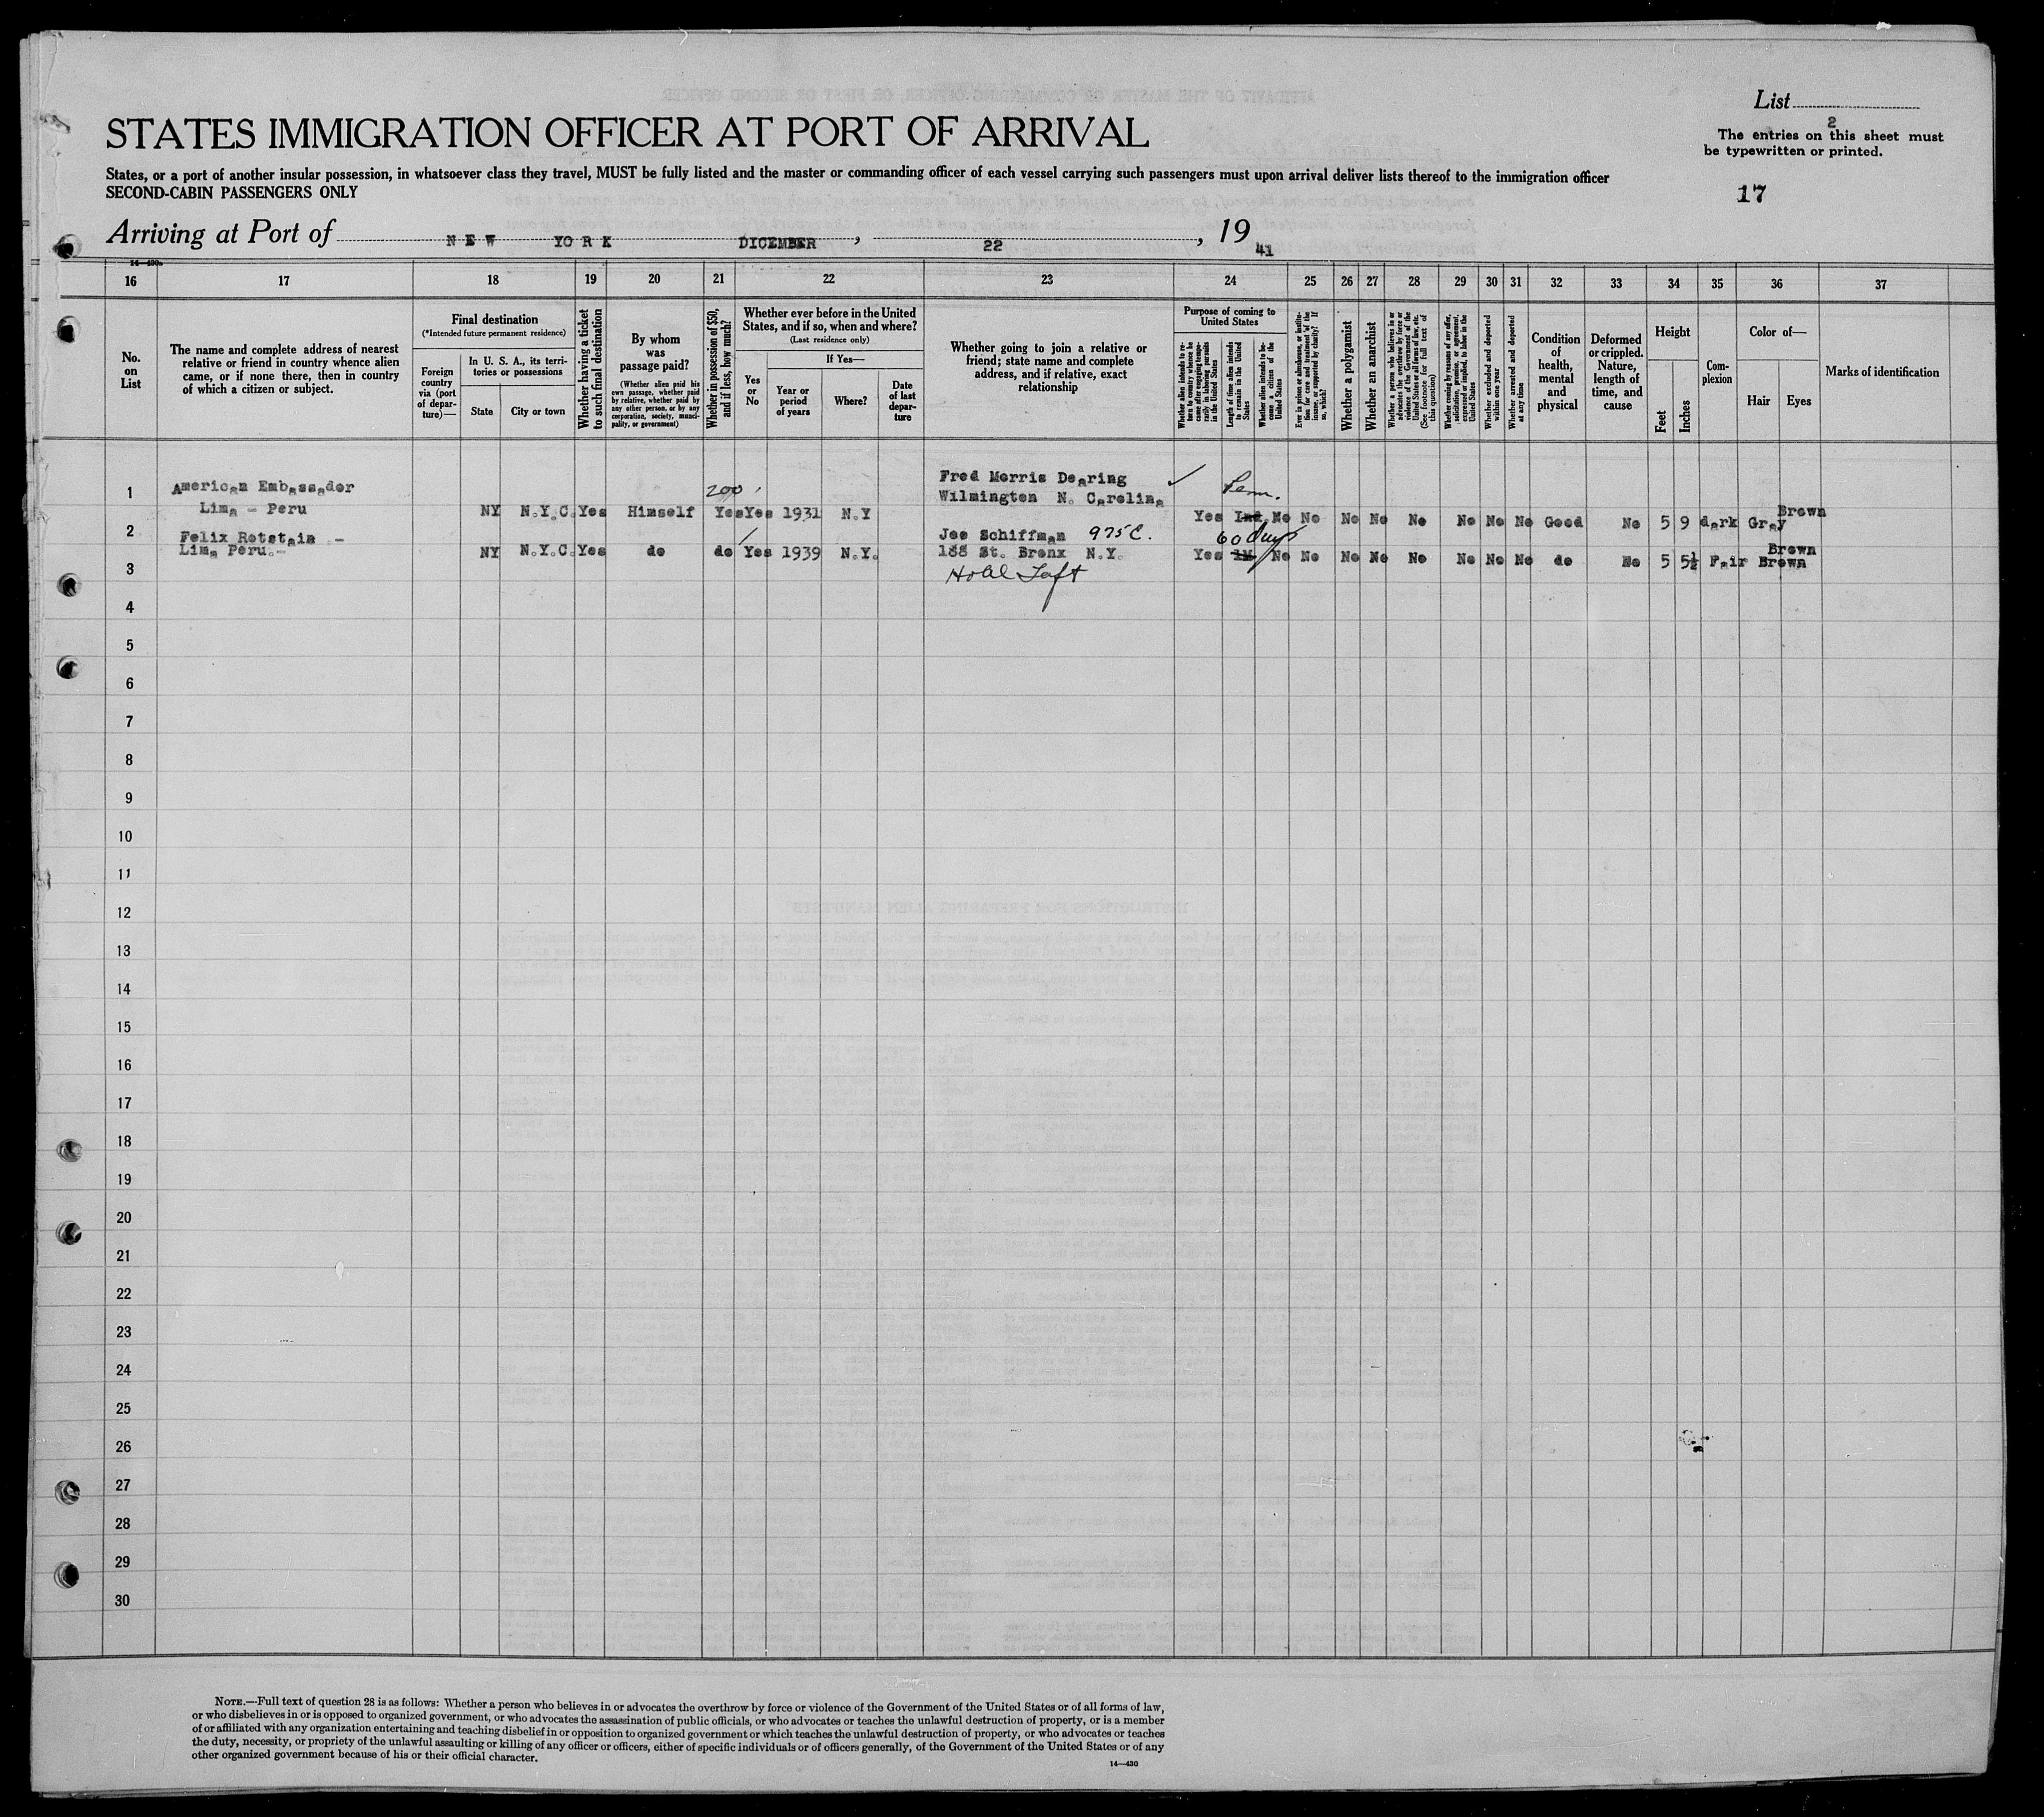 List
2
STATES IMMIGRATION OFFICER AT PORT OF ARRIVAL
The entries on this sheet must
be typewritten or printed.
States, or a port of another insular possession, in whatsoever class they travel, MUST be fully listed and the master or commanding officer of each vessel carrying such passengers must upon arrival deliver lists thereof to the immigration officer
SECOND-CABIN PASSENGERS ONLY
17
Arriving at Port of NEW YORK DICEMBER, 22, 1941
14—430a
16 17 18 19 20 21 22 23 24 25 26 27 28 29 30 31 32 33 34 35 36 37
No.
on
List
The name and complete address of nearest
relative or friend in country whence alien
came, or if none there, then in country
of which a citizen or subject.
Final destination
(*Intended future permanent residence)
Foreign
country
via (port
of depar-
ture)—
In U. S. A., its terri-
tories or possessions
State
City or town
Whether having a ticket
to such final destination
By whom
was
passage paid?
(Whether alien paid his
own passage, whether paid
by relative, whether paid by
any other person, or by any
corporation, society, munici-
pality, or government)
Whether in possession of $50,
and if less, how much?
Whether ever before in the United
States, and if so, when and where?
(Last residence only)
Yes
or
No
If Yes—
Year or
period
of years
Where?
Date
of last
depar-
ture
Whether going to join a relative or
friend; state name and complete
address, and if relative, exact
relationship
Purpose of coming to
United States
Whether alien intends to re-
turn to country whence he
came after engaging tempo-
rarily in laboring pursuits
in the United States
Length of time alien intends
to remain in the United
States
Whether alien intends to be-
come a citizen of the
United States
Ever in prison or almshouse, or institu-
tion for care and treatment of the
insane, or supported by charity? If
so, which?
Whether a polygamist
Whether an anarchist
Whether a person who believes in or
advocates the overthrow by force or
violence of the Government of the
United States or all forms of law, etc.
(See footnote for full text of
this question)
Whether coming by reasons of any offer,
solicitation, promise, or agreement,
expressed or implied, to labor in the
United States
Whether excluded and deported
within one year
Whether arrested and deported
at any time
Condition
of
health,
mental
and
physical
Deformed
or crippled.
Nature,
length of
time, and
cause
Height
Feet
Inches
Com-
plexion
Color of—
Hair
Eyes
Marks of identification
1 American Embassador 200 Fred Morris Dearing Perm.
Wilmington N. Carolina
Lima - Peru NY N.Y.C. Yes Himself Yes Yes 1931 N.Y Yes Ind. No No No No No No No No Good No 5 9 dark Gray Brown
2 Felix Rotstain - Joe Schiffman 975 C. 60 days
Lima Peru.- NY N.Y.C. Yes do do Yes 1939 N.Y. 188 St. Bronx N.Y. Yes 1M No No No No No No No No do No 5 5½ Fair Brown Brown
3 Hotel Taft
4
5
6
7
8
9
10
11
12
13
14
15
16
17
18
19
20
21
22
23
24
25
26
27
28
29
30
NOTE.—Full text of question 28 is as follows: Whether a person who believes in or advocates the overthrow by force or violence of the Government of the United States or of all forms of law,
or who disbelieves in or is opposed to organized government, or who advocates the assassination of public officials, or who advocates or teaches the unlawful destruction of property, or is a member
of or affiliated with any organization entertaining and teaching disbelief in or opposition to organized government or which teaches the unlawful destruction of property, or who advocates or teaches
the duty, necessity, or propriety of the unlawful assaulting or killing of any officer or officers, either of specific individuals or of officers generally, of the Government of the United States or of any
other organized government because of his or their official character.
14—430